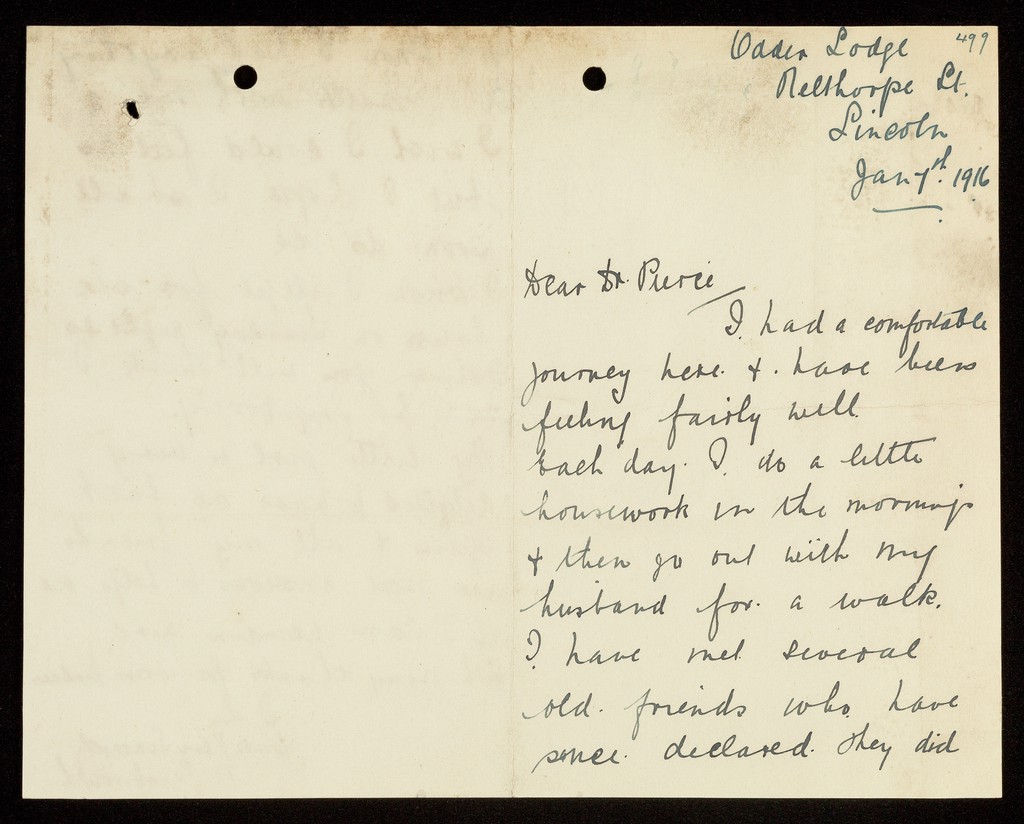 499
Odder Lodge
Nelthorpe St.
Lincoln
Jan 7th. 1916
Dear Dr. Pierce
I had a comfortable
journey here. & have been
feeling fairly well
each day. I do a little
housework in the mornings
& then go out with my
husband for a walk.
I have met several
old friends who have
since declared they did